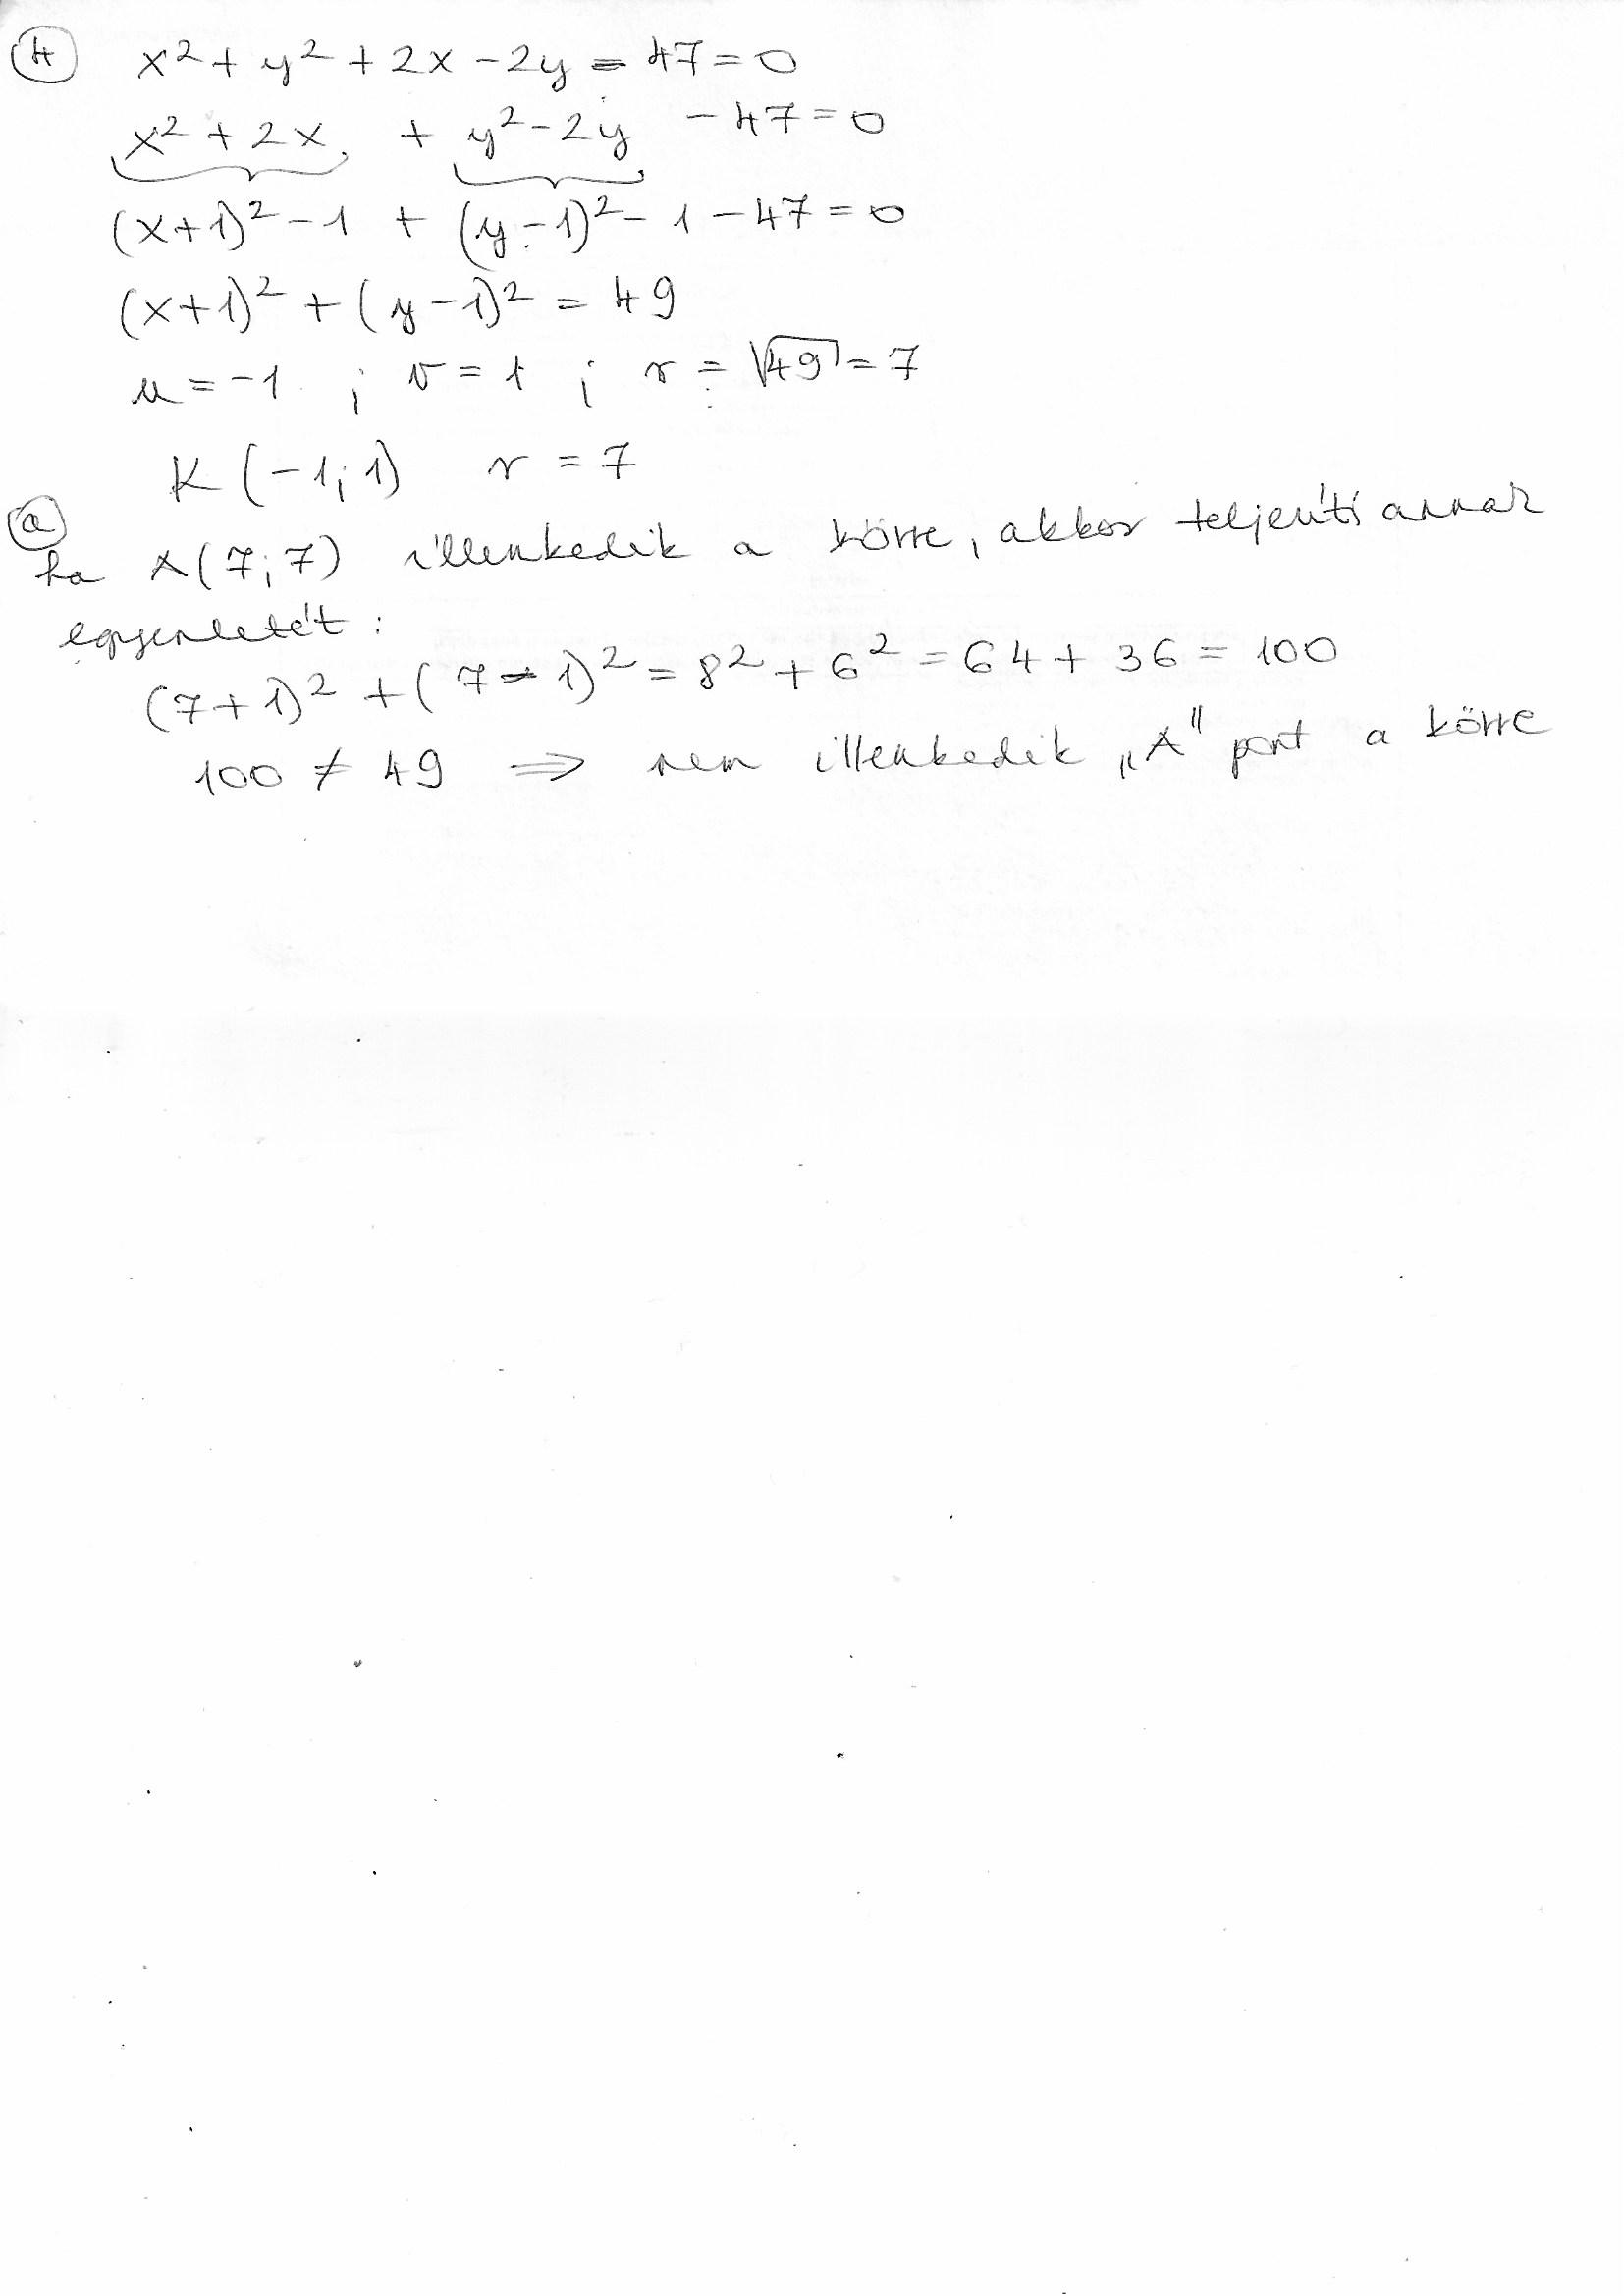 4 x² + y² + 2x - 2y - 47 = 0
x² + 2x + y² - 2y - 47 = 0
(x+1)² - 1 + (y-1)² - 1 - 47 = 0
(x+1)² + (y-1)² = 49
u = -1 ; v = 1 ; r = √49 = 7
K (-1; 1) r = 7
a
ha A(7; 7) illeszkedik a körre, akkor teljesíti annak
egyenletét :
(7+1)² + (7-1)² = 8² + 6² = 64 + 36 = 100
100 ≠ 49 ⇒ nem illeszkedik „A" pont a körre